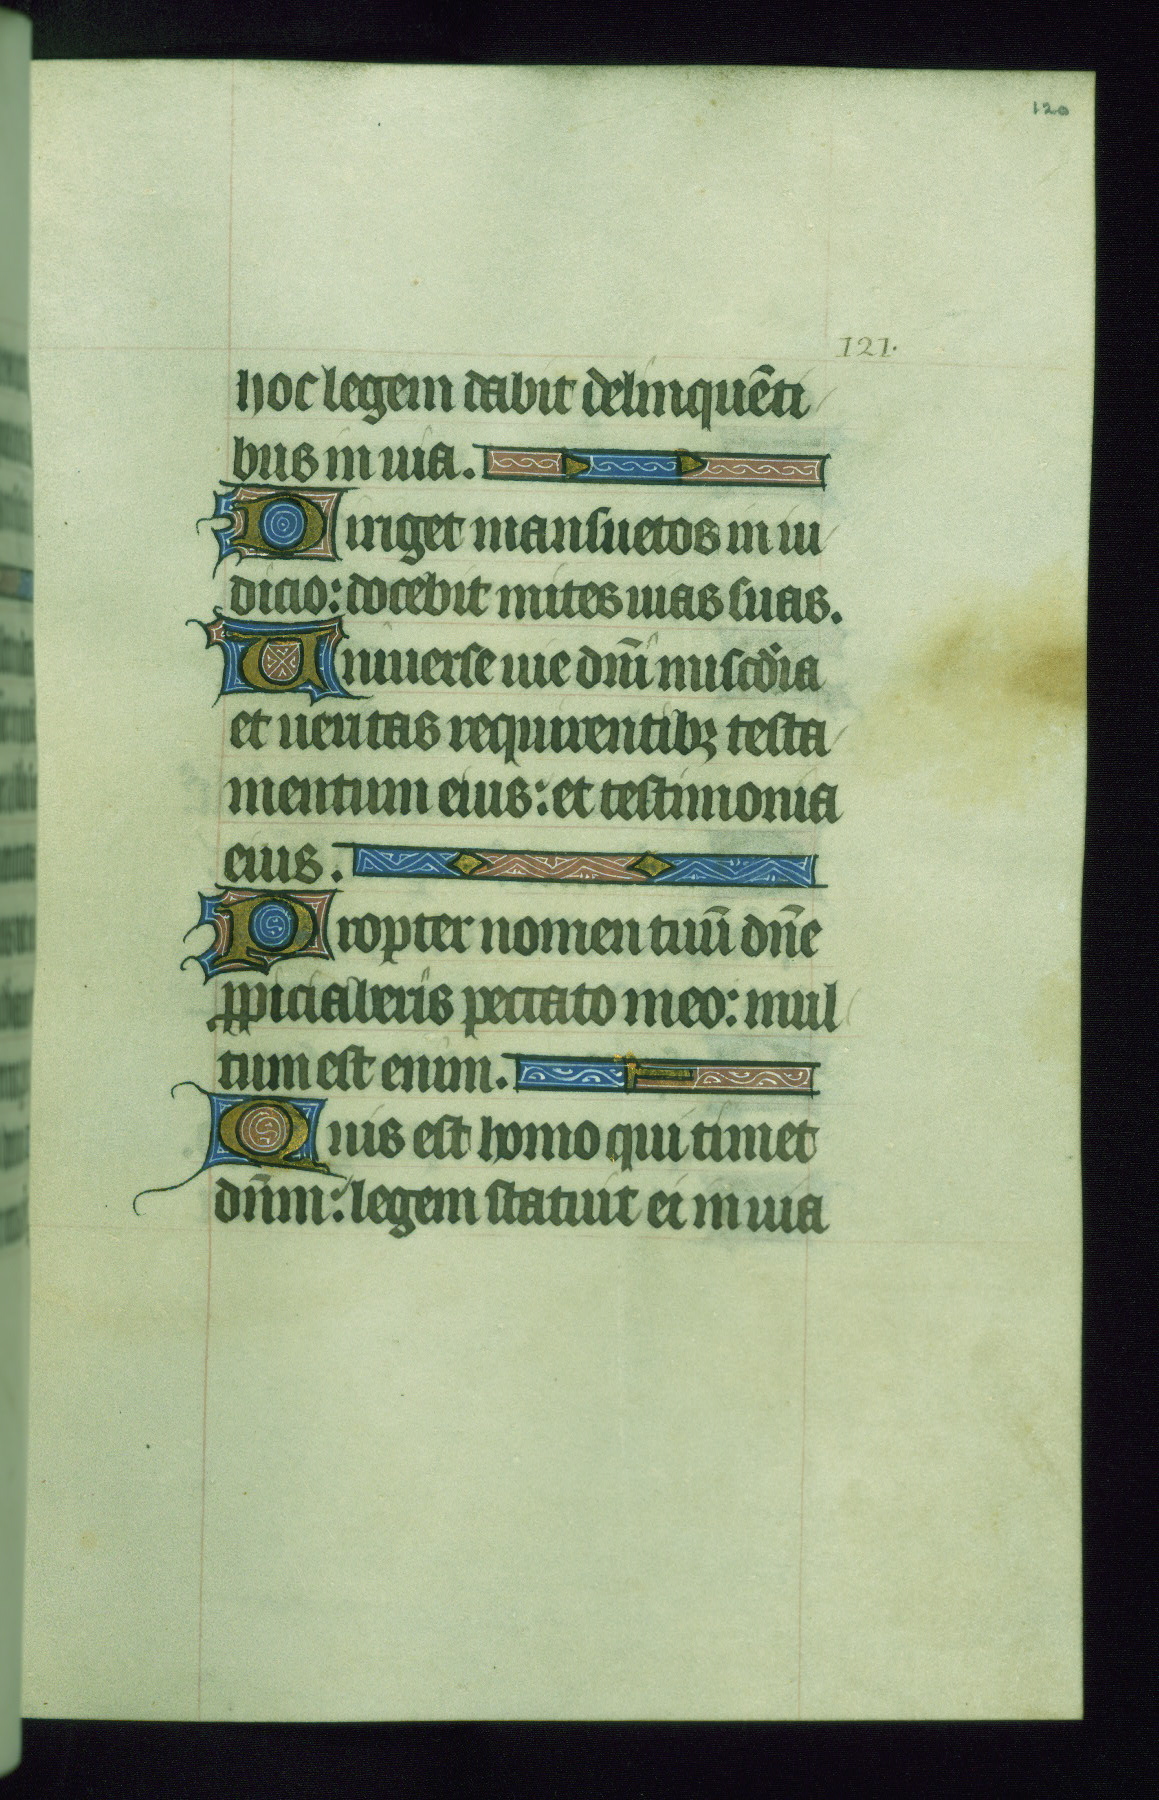 120
121.
hoc legem dabit delinquēti
bus in uia.
Diriget mansuetos in iu
dicio: docebit mites uias suas.
Uniuerse uie dn̄i misc̄dia
et ueritas requirentibꝫ testa
mentum eius: et testimonia
eius.
Propter nomen tuū dn̄e
ꝓpiciaberis peccato meo: mul
tum est enim.
Quis est homo qui timet
dn̄m: legem statuit ei in uia